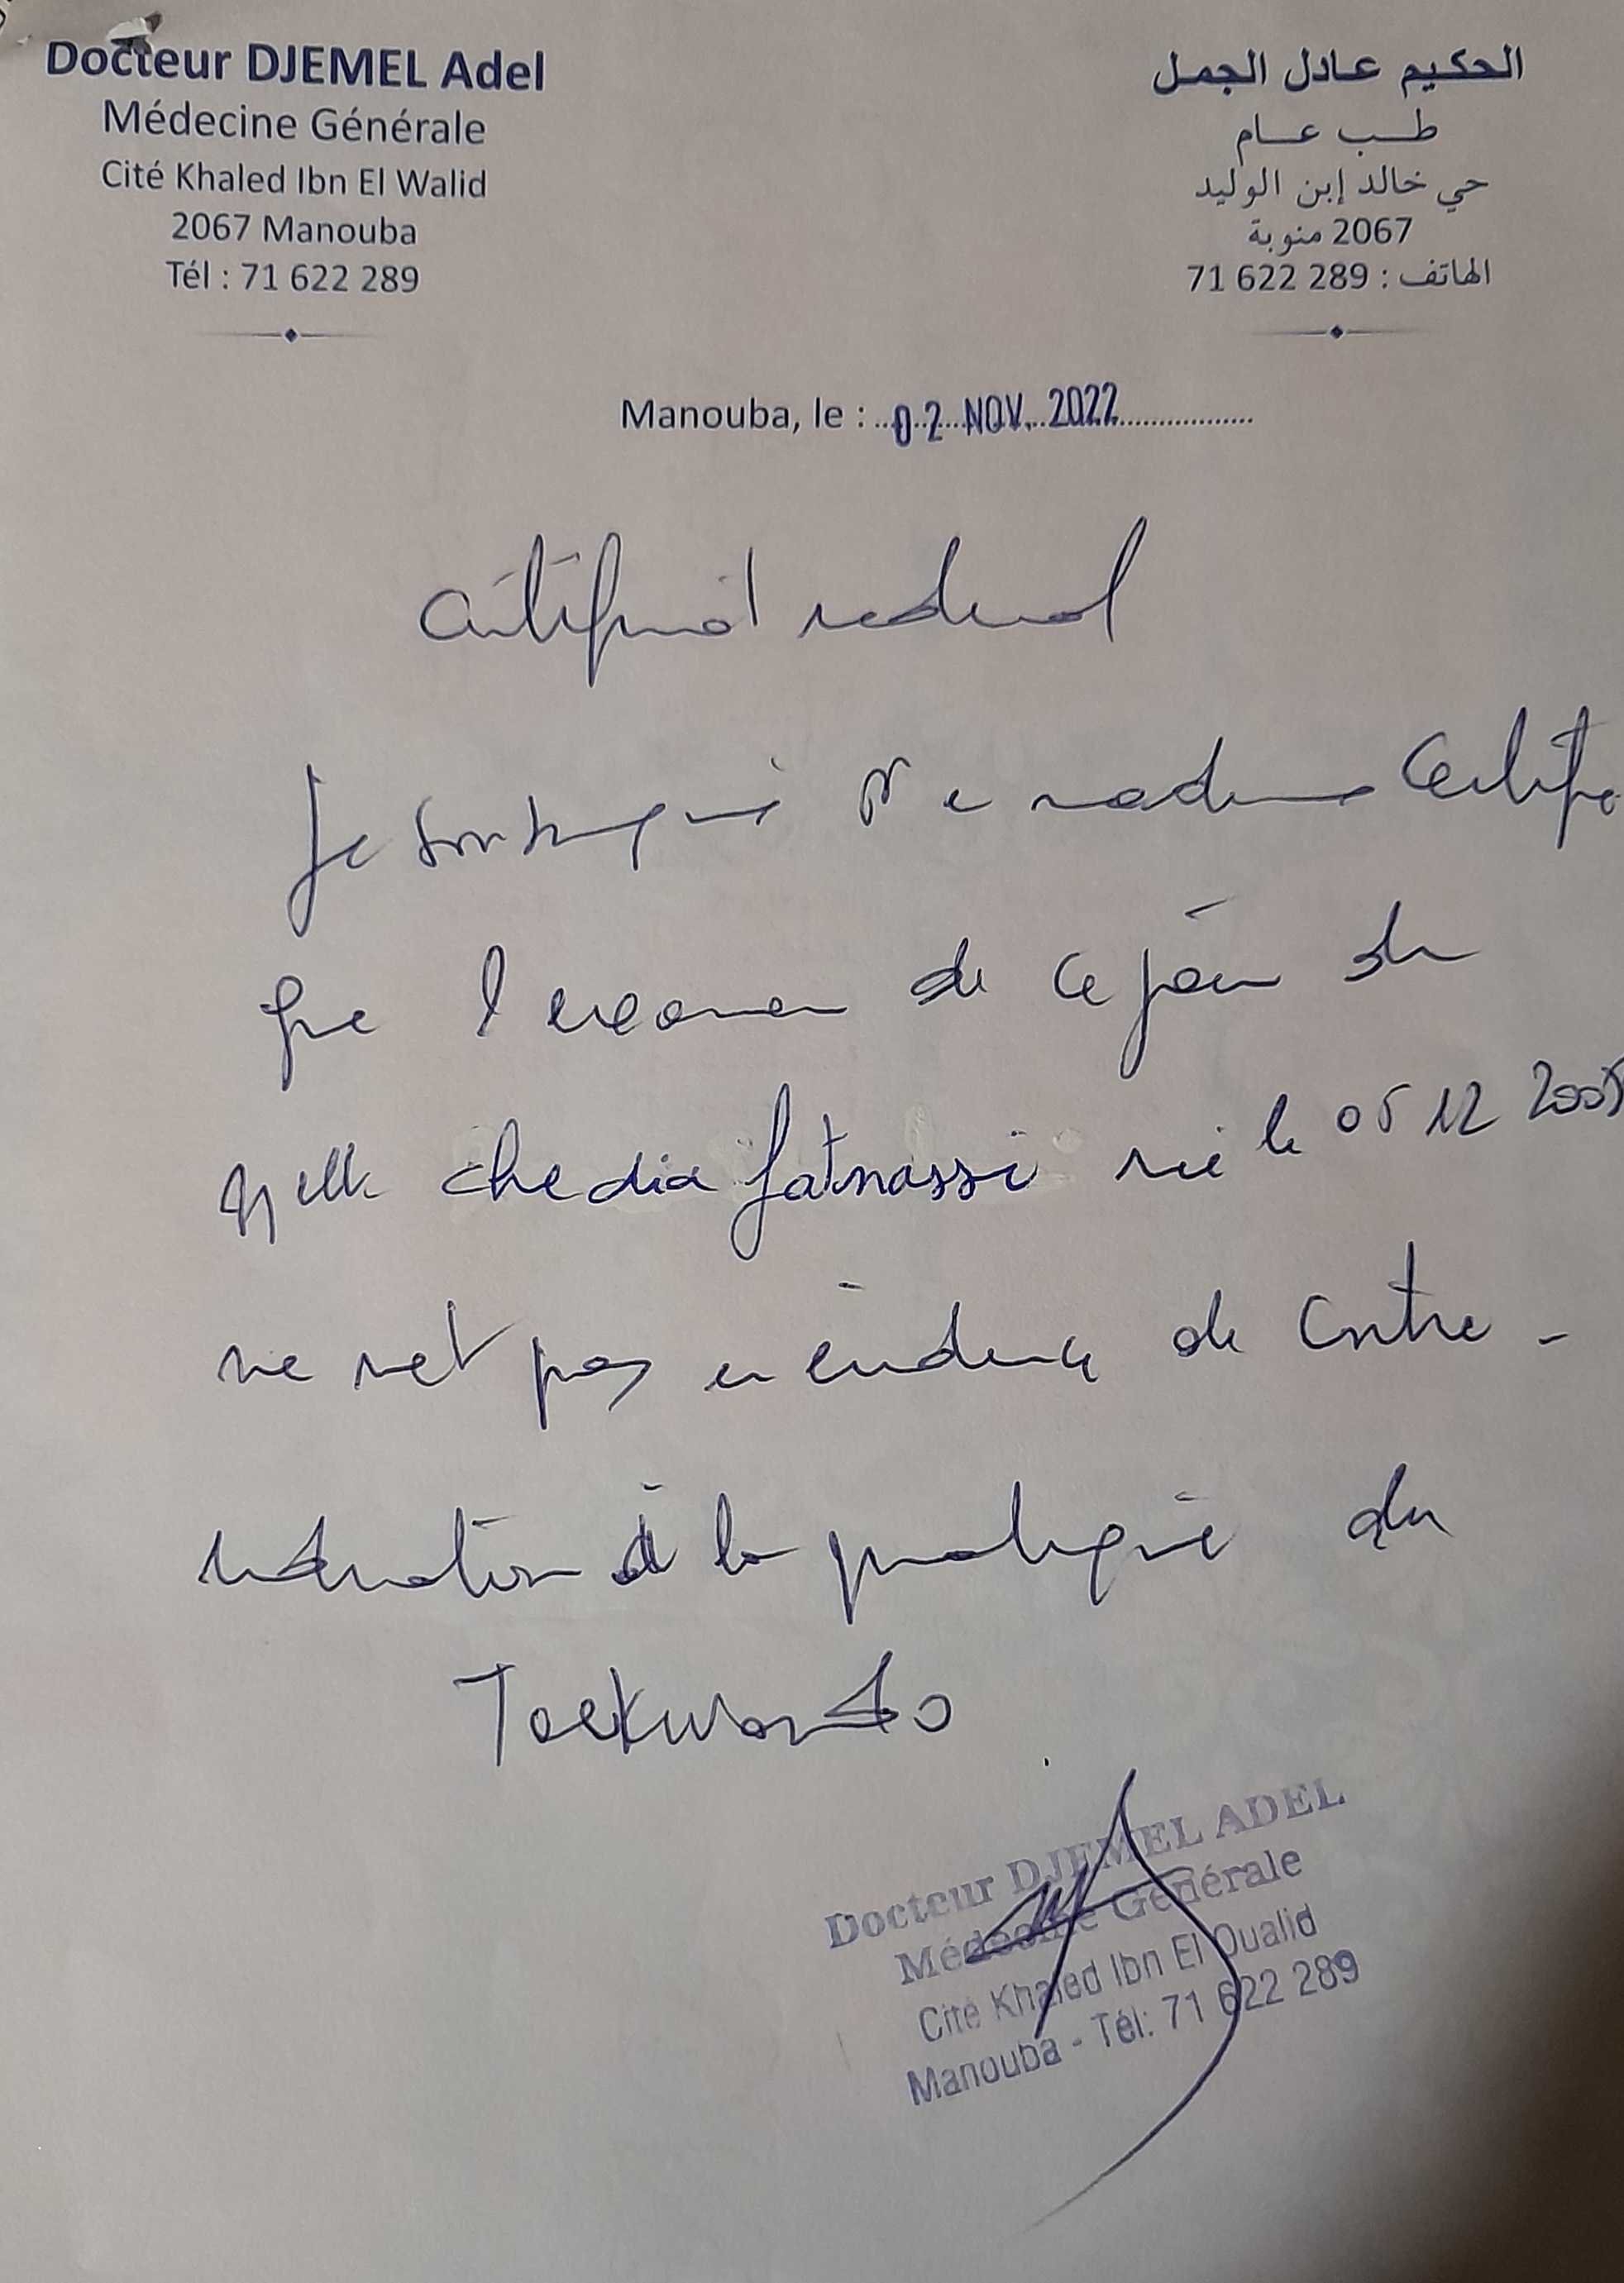 Docteur DJEMEL Adel
Médecine Générale
Cité Khaled Ibn El Walid
2067 Manouba
Tél : 71 622 289
الحكيم عادل الجمل
طب عام
حي خالد إبن الوليد
2067 منوبة
الهاتف : 71 622 289
Manouba, le : 02 NOV. 2022
Certificat médical
Je soussigné Dr en médecine Certifie
que l'examen de ce jour de
Melle chedia fatnassi née le 05 12
ne met pas en évidence de Contre-
indication à la pratique du
Taekwondo
Docteur DJEMEL ADEL
Médecine Générale
Cité Khaled Ibn El Oualid
Manouba - Tél: 71 622 289